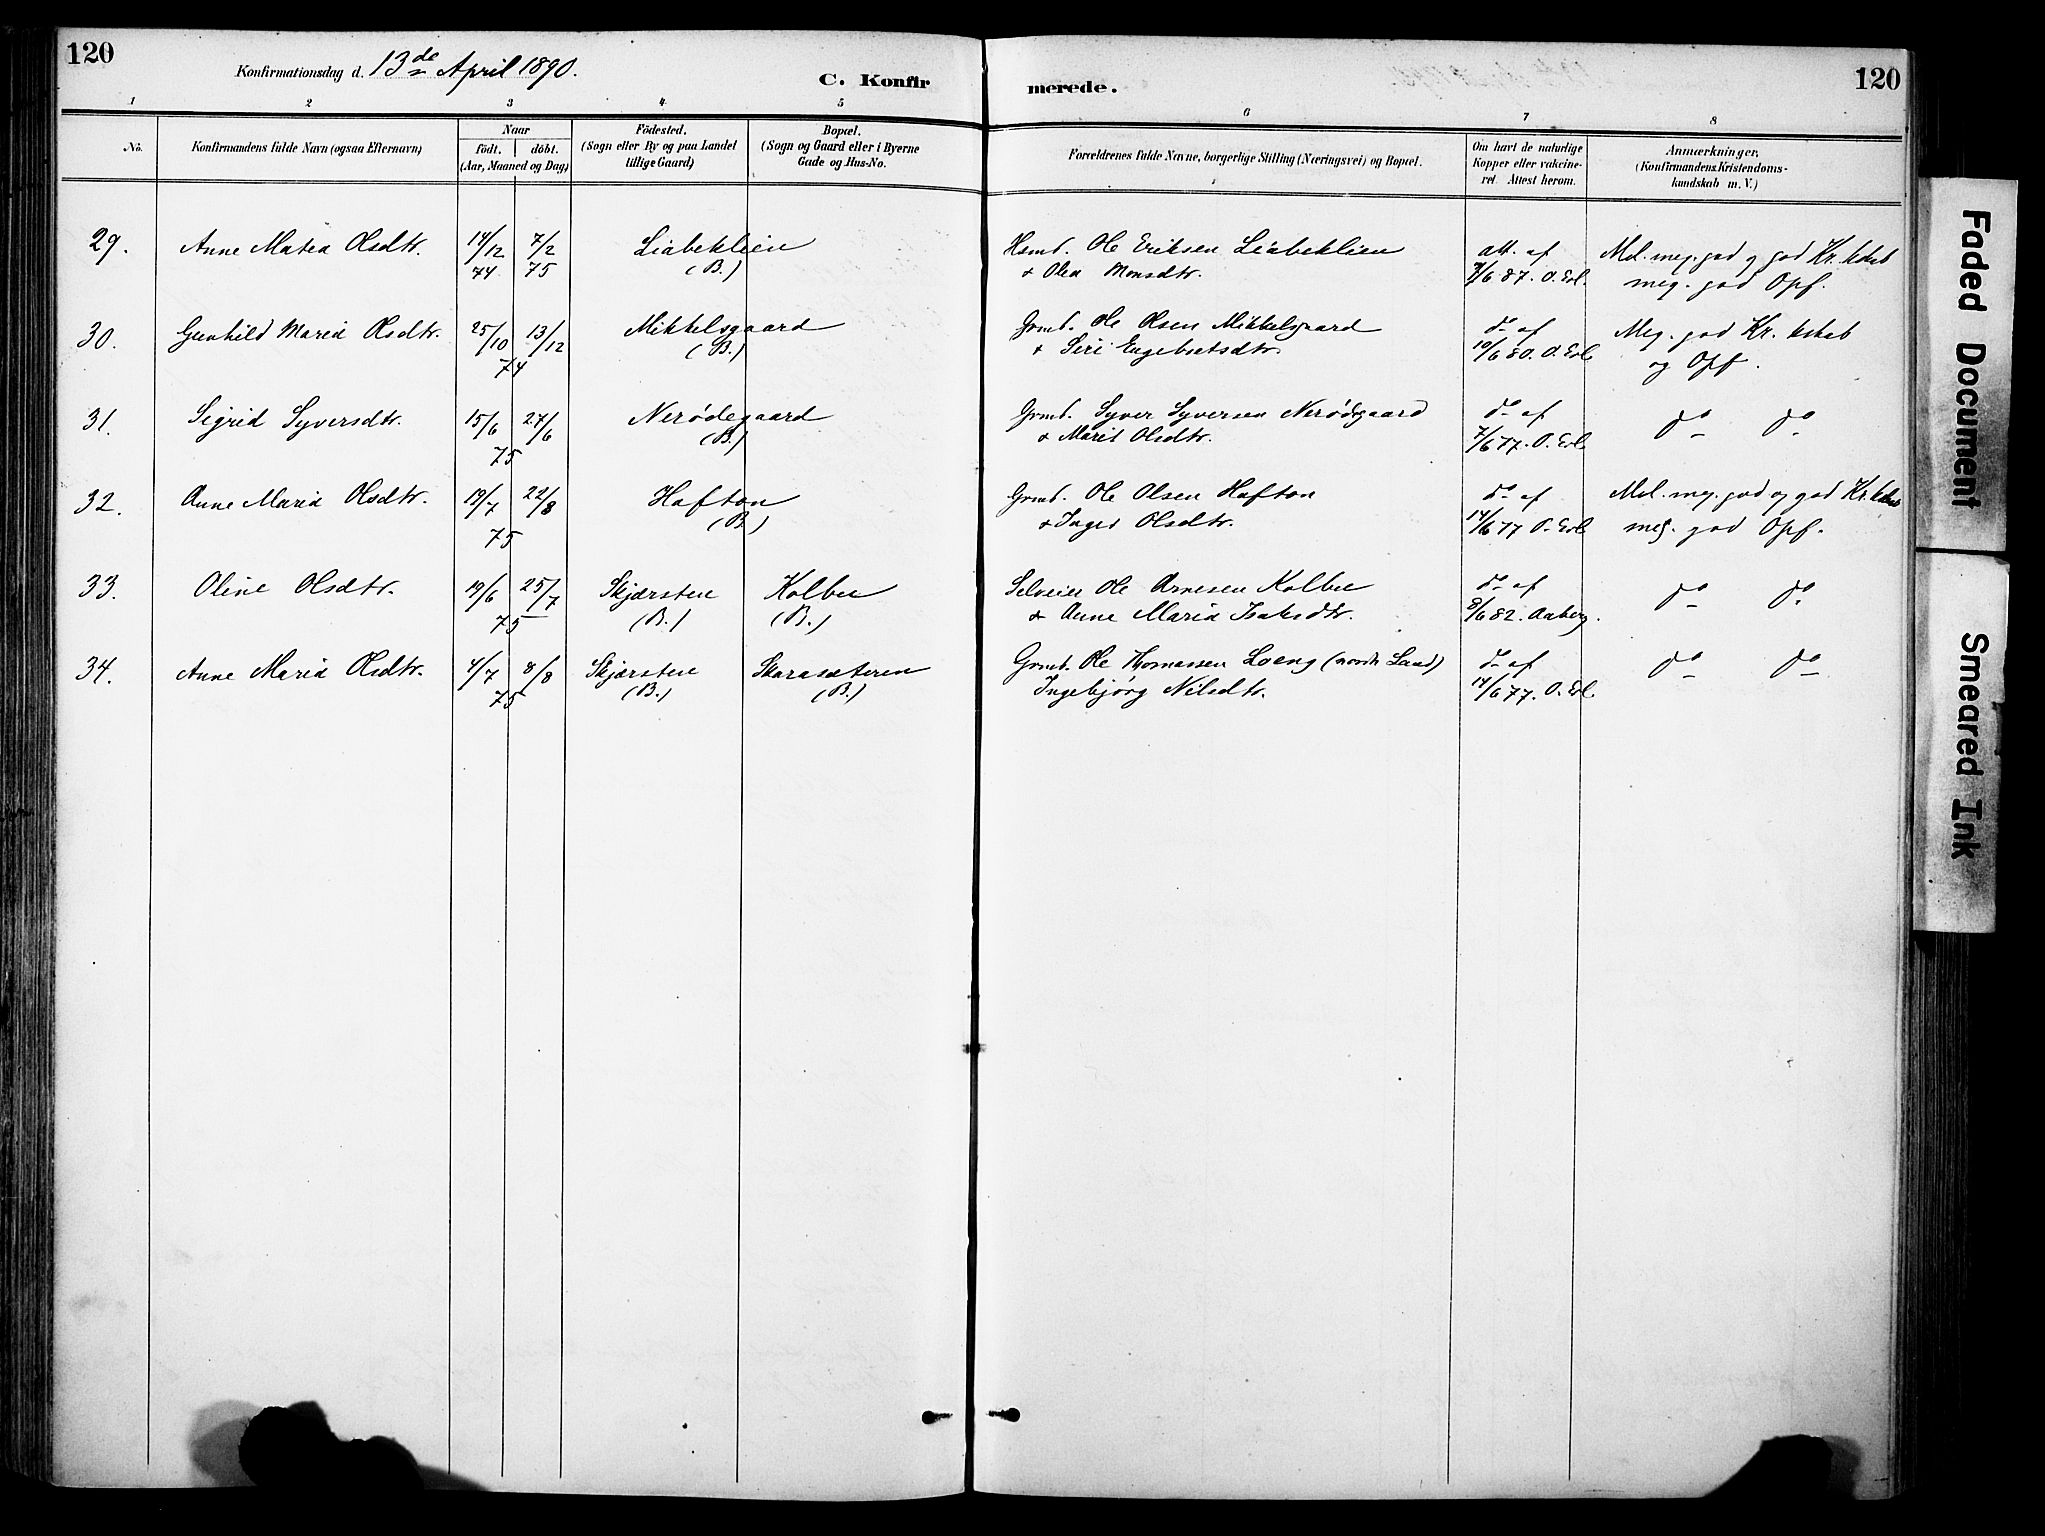 120
Konfirmationsdag d. 13de April 1890.
C. Konfir
merede.
120
1 2 3 4 5 6 7 8
No.
Konfirmandens fulde Navn (ogsaa Efternavn)
Naar
født. døbt.
(Aar, Maaned og Dag)
Födested.
(Sogn eller By og paa Landet
tillige Gaard)
Bopæl.
(Sogn og Gaard eller i Byerne
Gade og Hus-No.
Forældrenes fulde Navne, borgerlige Stilling (Næringsvei) og Bopæl.
Om havt de naturlige
Kopper eller vakcine-
ret. Attest herom.
Anmærkninger,
(Konfirmandens Kristendoms-
kundskab m. V.)
29. Anne Matea Olsdtr. 14/12 7/2 Liabeklien Hsmd. Ole Eriksen Liabeklien att. af Mel. meg. god og god Kr. kskab
74 75 (B.) & Olea Monsdtr. 7/6 87. O. Evl. meg. god Opf.
30. Gunhild Maria Olsdtr. 25/10 13/12 Mikkelsgaard Grmd. Ole Olsen Mikkelsgaard do af Meg. god Kr. kskab
74 (B.) & Siri Engebretsdtr. 10/6 80. O. Evl. og Opf.
31. Sigrid Syversdtr. 15/6 27/6 Nerödegaard Grmd. Syver Syversen Nerödegaard do af do do
75 (B.) & Marit Olsdtr. 7/6 77. O. Evl.
32. Anne Maria Olsdtr. 19/7 22/8 Hafton Grmd. Ole Olsen Hafton do af Mel. meg. god og god Kr. kskab
75 (B.) & Inger Olsdtr. 14/6 77 O. Evl. meg. god Opf.
33. Oline Olsdtr. 19/6 25/7 Skjærsten Kolbu Selveier Ole Arnesen Kolbu do af do do
75 (B.) (B.) & Anne Maria Isaksdtr. 9/6 82. Aaberg.
34. Anne Maria Olsdtr. 4/7 8/8 Skjærsten Skarasæteren Grmd. Ole Thomassen Loeng (nordr. Land) do af do do
75 (B.) (B.) Ingebjörg Nilsdtr. 14/6 77. O. Evl.
Faded Document
Smeared Ink